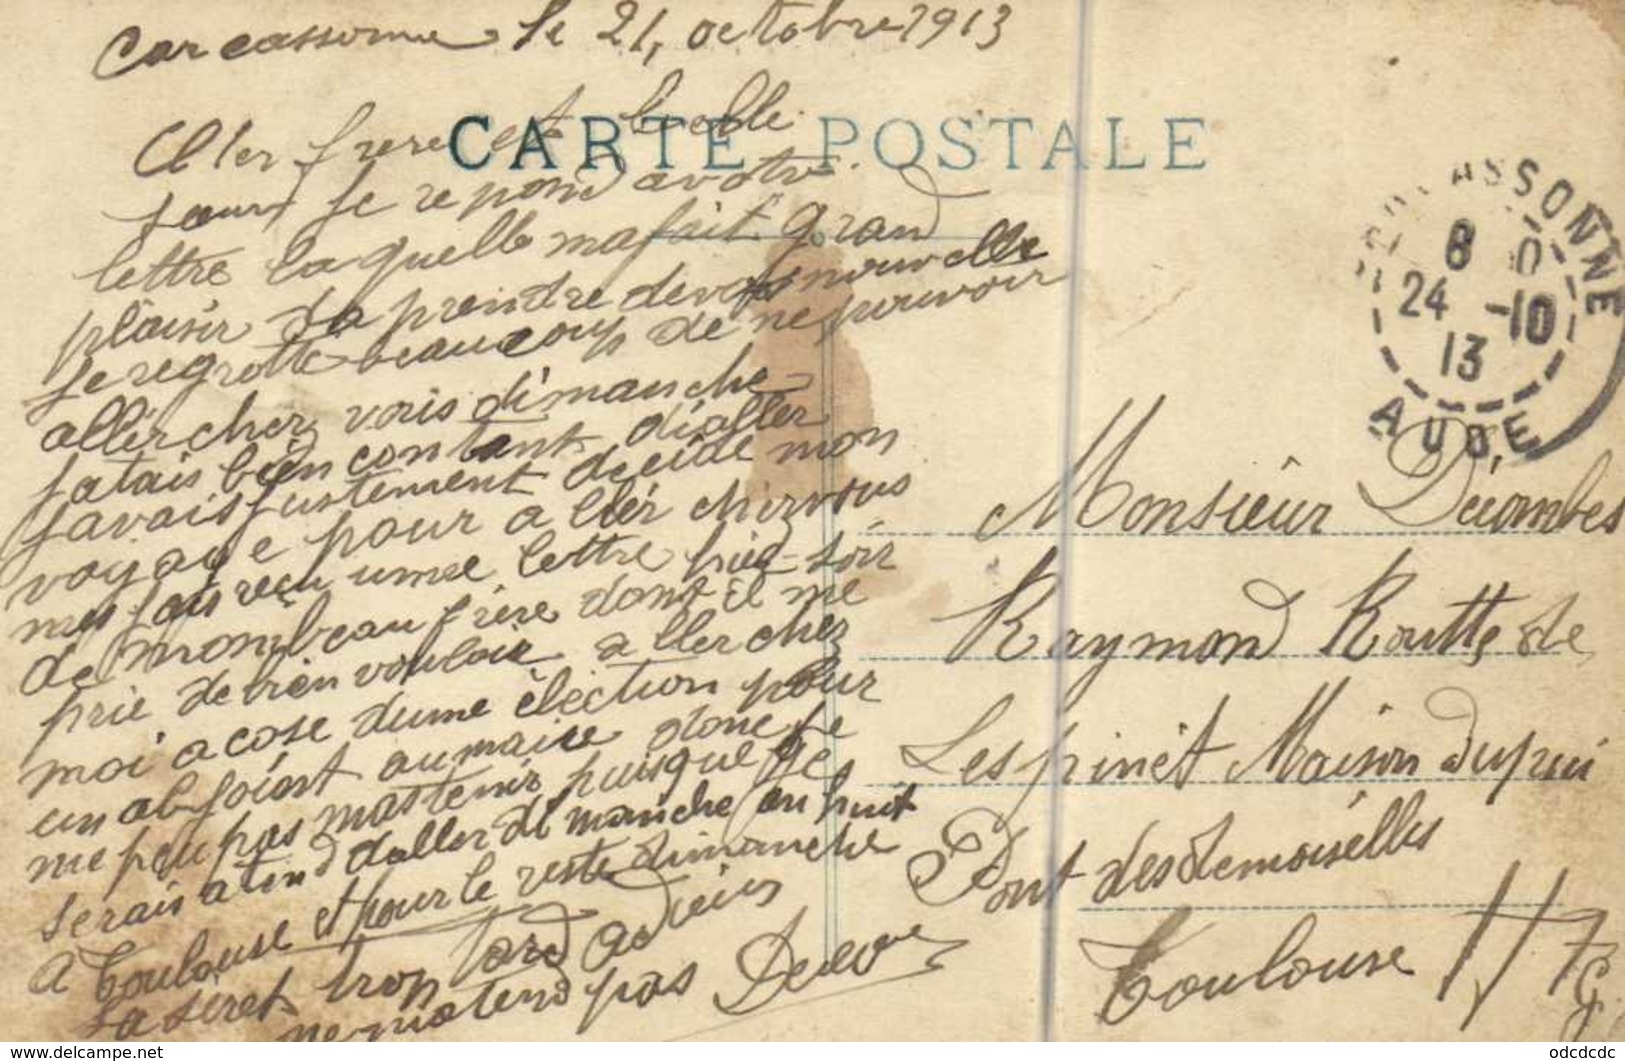 Carcassonne le 21, octobre 1913
CARTE POSTALE
Cher frere et belle
sœur je repond a votre
lettre laquelle ma fait grand
plaisir da prendre de vos nouvelle
je regrette beaucoup de ne pouvoir
aller chez vois dimanche
jatais bien contant d'aller
javais justement decide mon
voyage pour aller chez vous
mes jais reçu une lettre hied soir
de mon beau frère dont il me
prie de bien vouloir aller chez
moi a cose dune élection pour
un abjoint au maire donc je
me peu pas mastenir puisque je
serais atend daller dimanche en huit
a Toulouse et pour le reste dimanche
sa seret trop tard adieus
ne matend pas
CARCASSONNE
8
24 -10
13
AUDE
Monsieur Décombes
Raymond Routte de
Lespinet Maison Dupui
Pont des demoiselles
Toulouse H G
odcdcdc
www.delcampe.net